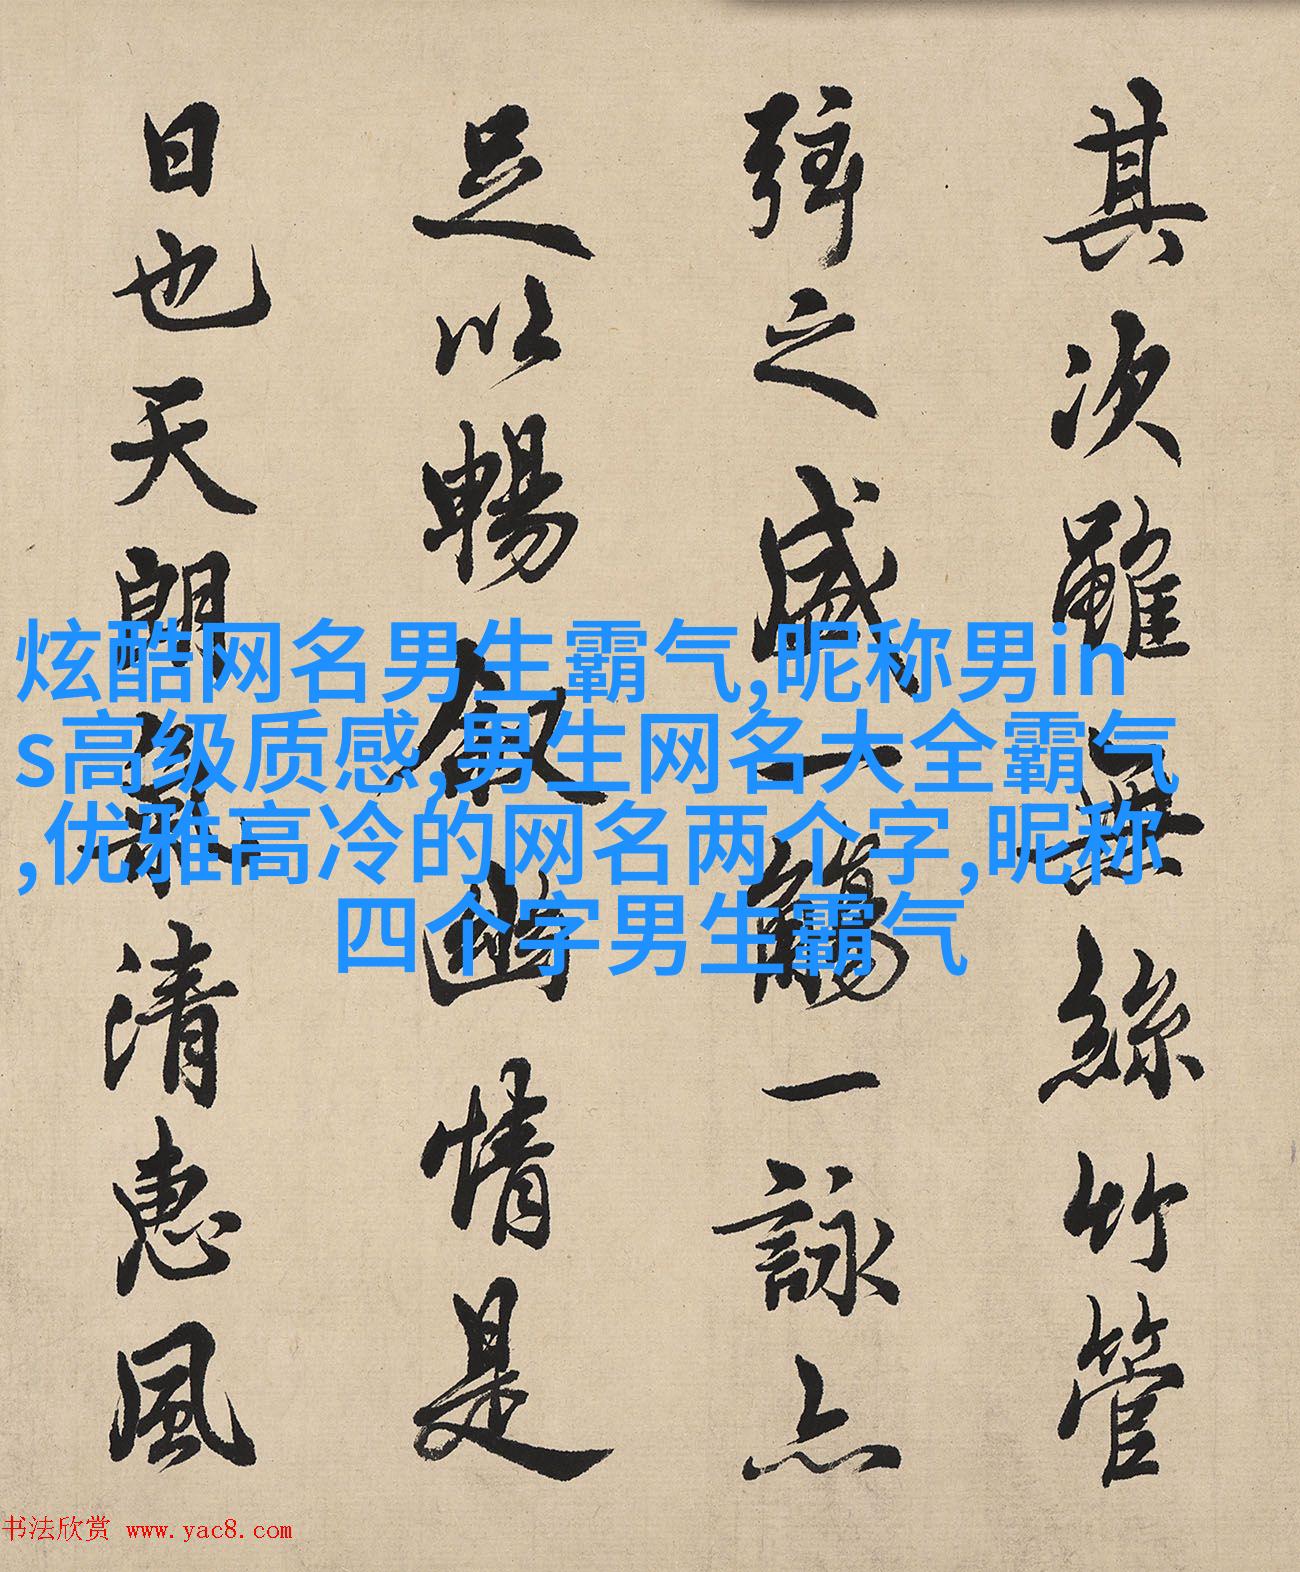 其次雖無絲竹管
弦之盛一觴一詠亦
足以暢叙幽情是
日也天朗氣清惠風
炫酷网名男生霸气,昵称男in
s高级质感,男生网名大全霸气
,优雅高冷的网名两个字,昵称
四个字男生霸气
书法欣赏 www.yac8.com